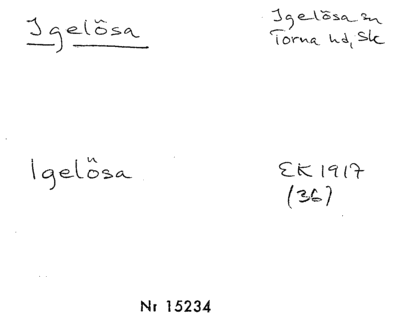 Igelösa
Igelösa sn
Torna hd, Sk
Igelösa
EK 1917
(36)
Nr 15234